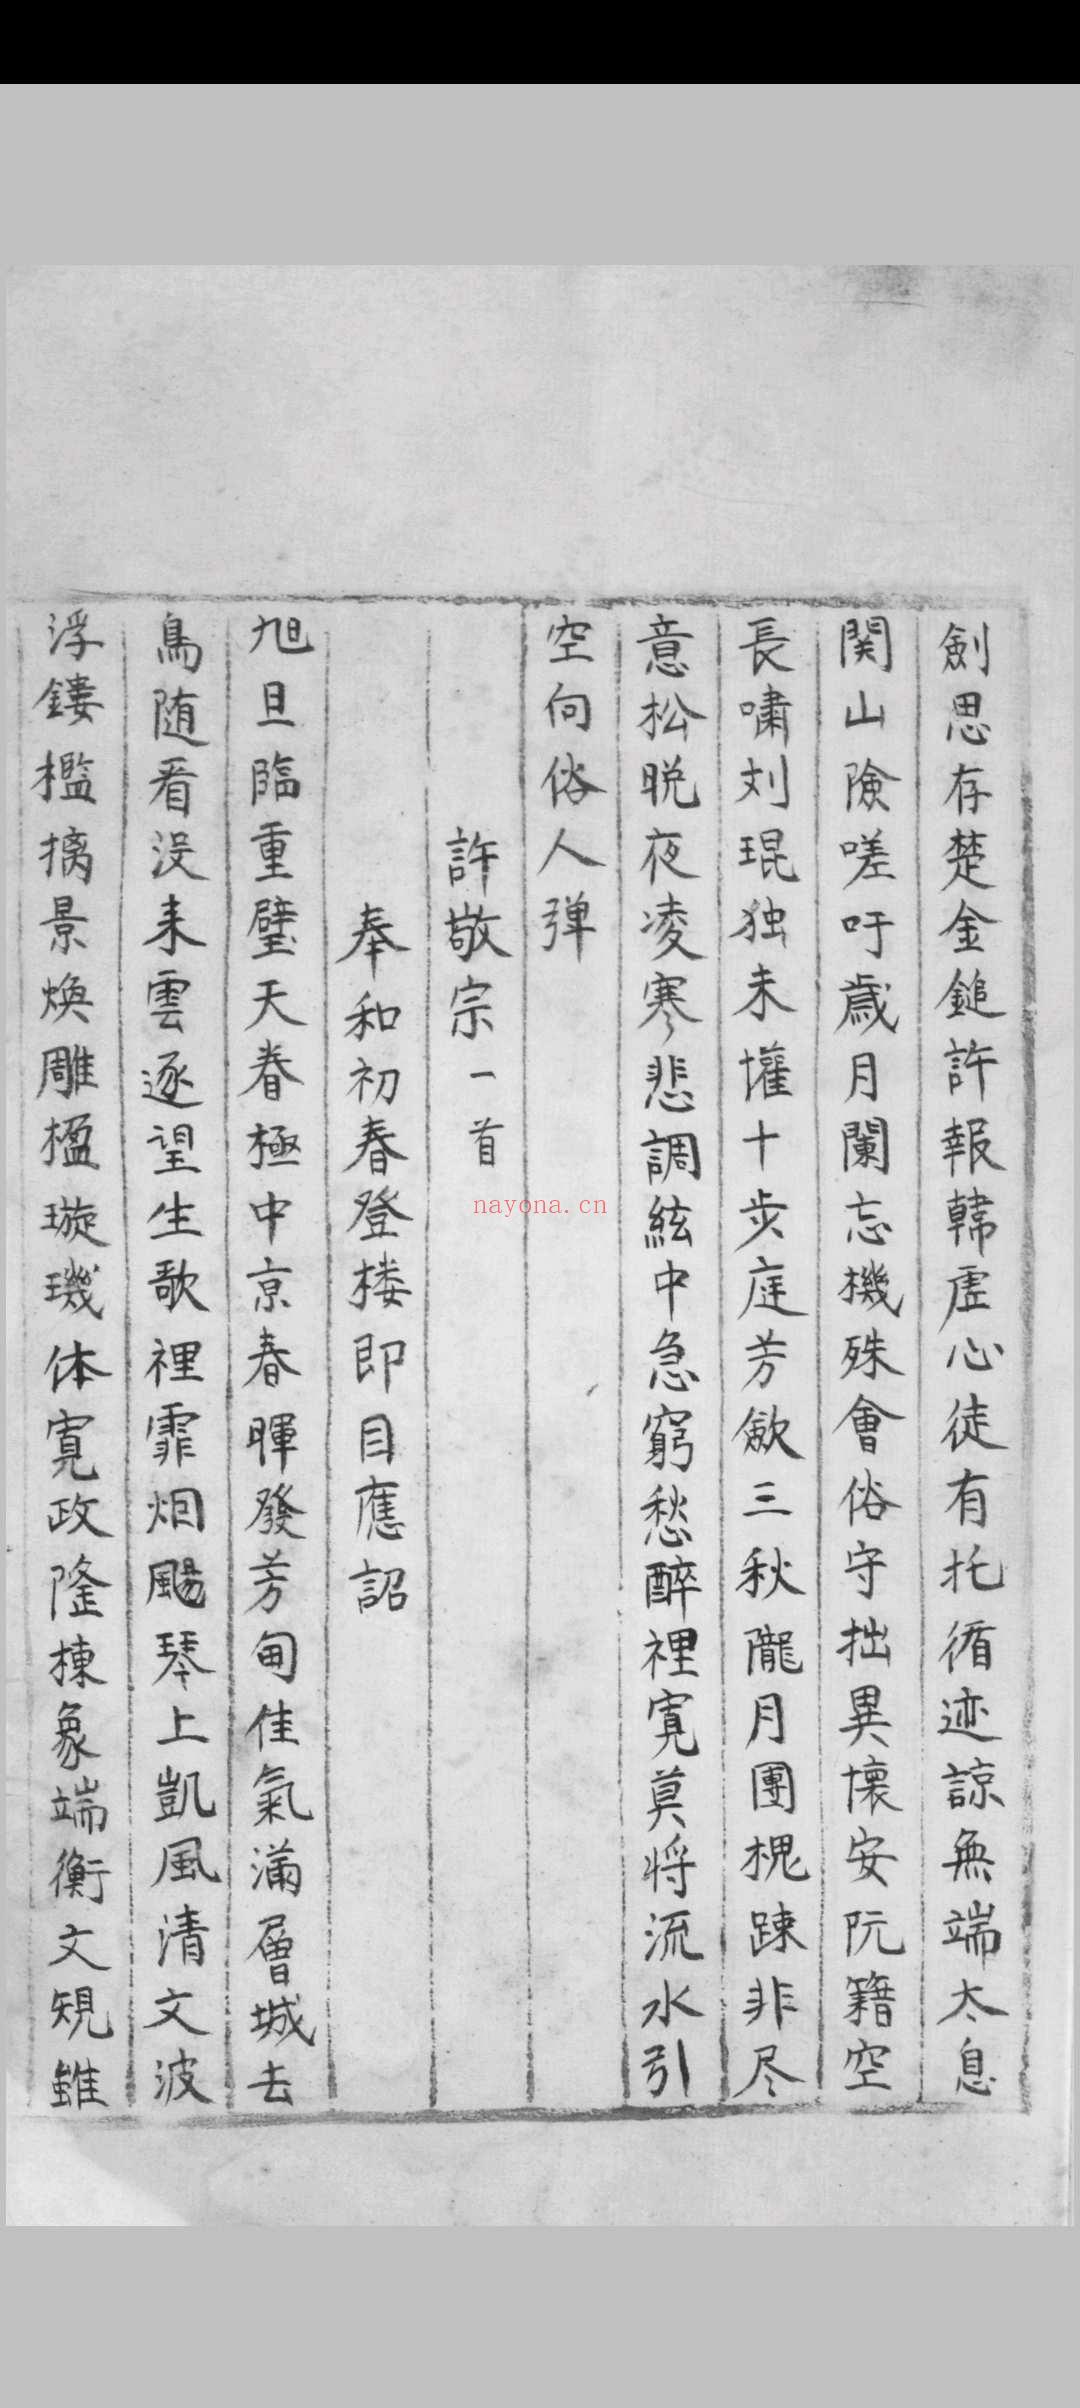 劍思存楚金鎚許報韓虛心徒有托循迹諒無端太息
関山險嗟吁歲月闌忘機殊會俗守拙異懷安阮籍空
長嘯刘琨独未懽十步庭芳歛三秋隴月團槐踈非尽
意松晩夜凌寒悲調絃中急窮愁醉裡寬莫将流水引
空向俗人弹
許敬宗一首
奉和初春登楼即目應詔
旭旦臨重璧天眷極中京春暉發芳甸佳氣滿層城去
鳥随看沒来雲逐望生歌裡霏烟颺琴上凱風清文波
浮鏤檻摛景煥雕楹璇璣体寬政隆棟象端衡文規雖
nayona.cn